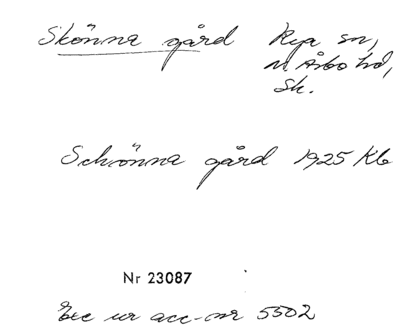 Skönna gård Rya sn,
N Åsbo hd,
Sk.
Schönna gård 1925 Kb
Nr 23087
Exc ur acc-nr 5502